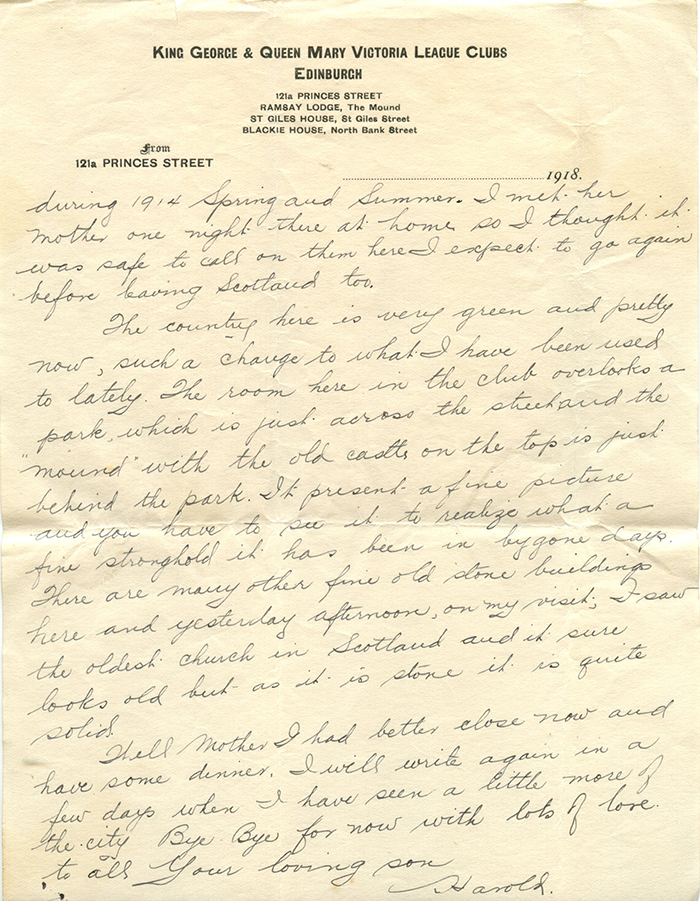 KING GEORGE & QUEEN MARY VICTORIA LEAGUE CLUBS
EDINBURGH
121a PRINCES STREET
RAMSAY LODGE, The Mound
ST GILES HOUSE, St Giles Street
BLACKIE HOUSE, North Bank Street
From
121a PRINCES STREET
1918.
during 1914 Spring and Summer. I met her
Mother one night there at home so I thought it
was safe to call on them here I expect to go again
before leaving Scotland too.
The country here is very green and pretty
now, such a change to what I have been used
to lately. The room here in the club overlooks a
park, which is just across the street and the
"mound" with the old castle on the top is just
behind the park. It present a fine picture
and you have to see it to realize what a
fine stronghold it has been in bygone days.
There are many other fine old stone buildings
here and yesterday afternoon, on my visit, I saw
the oldest church in Scotland and it sure
looks old but as it is stone it is quite
solid.
Well Mother I had better close now and
have some dinner. I will write again in a
few days when I have seen a little more of
the city Bye Bye for now with lots of love
to all Your loving son
Harold.